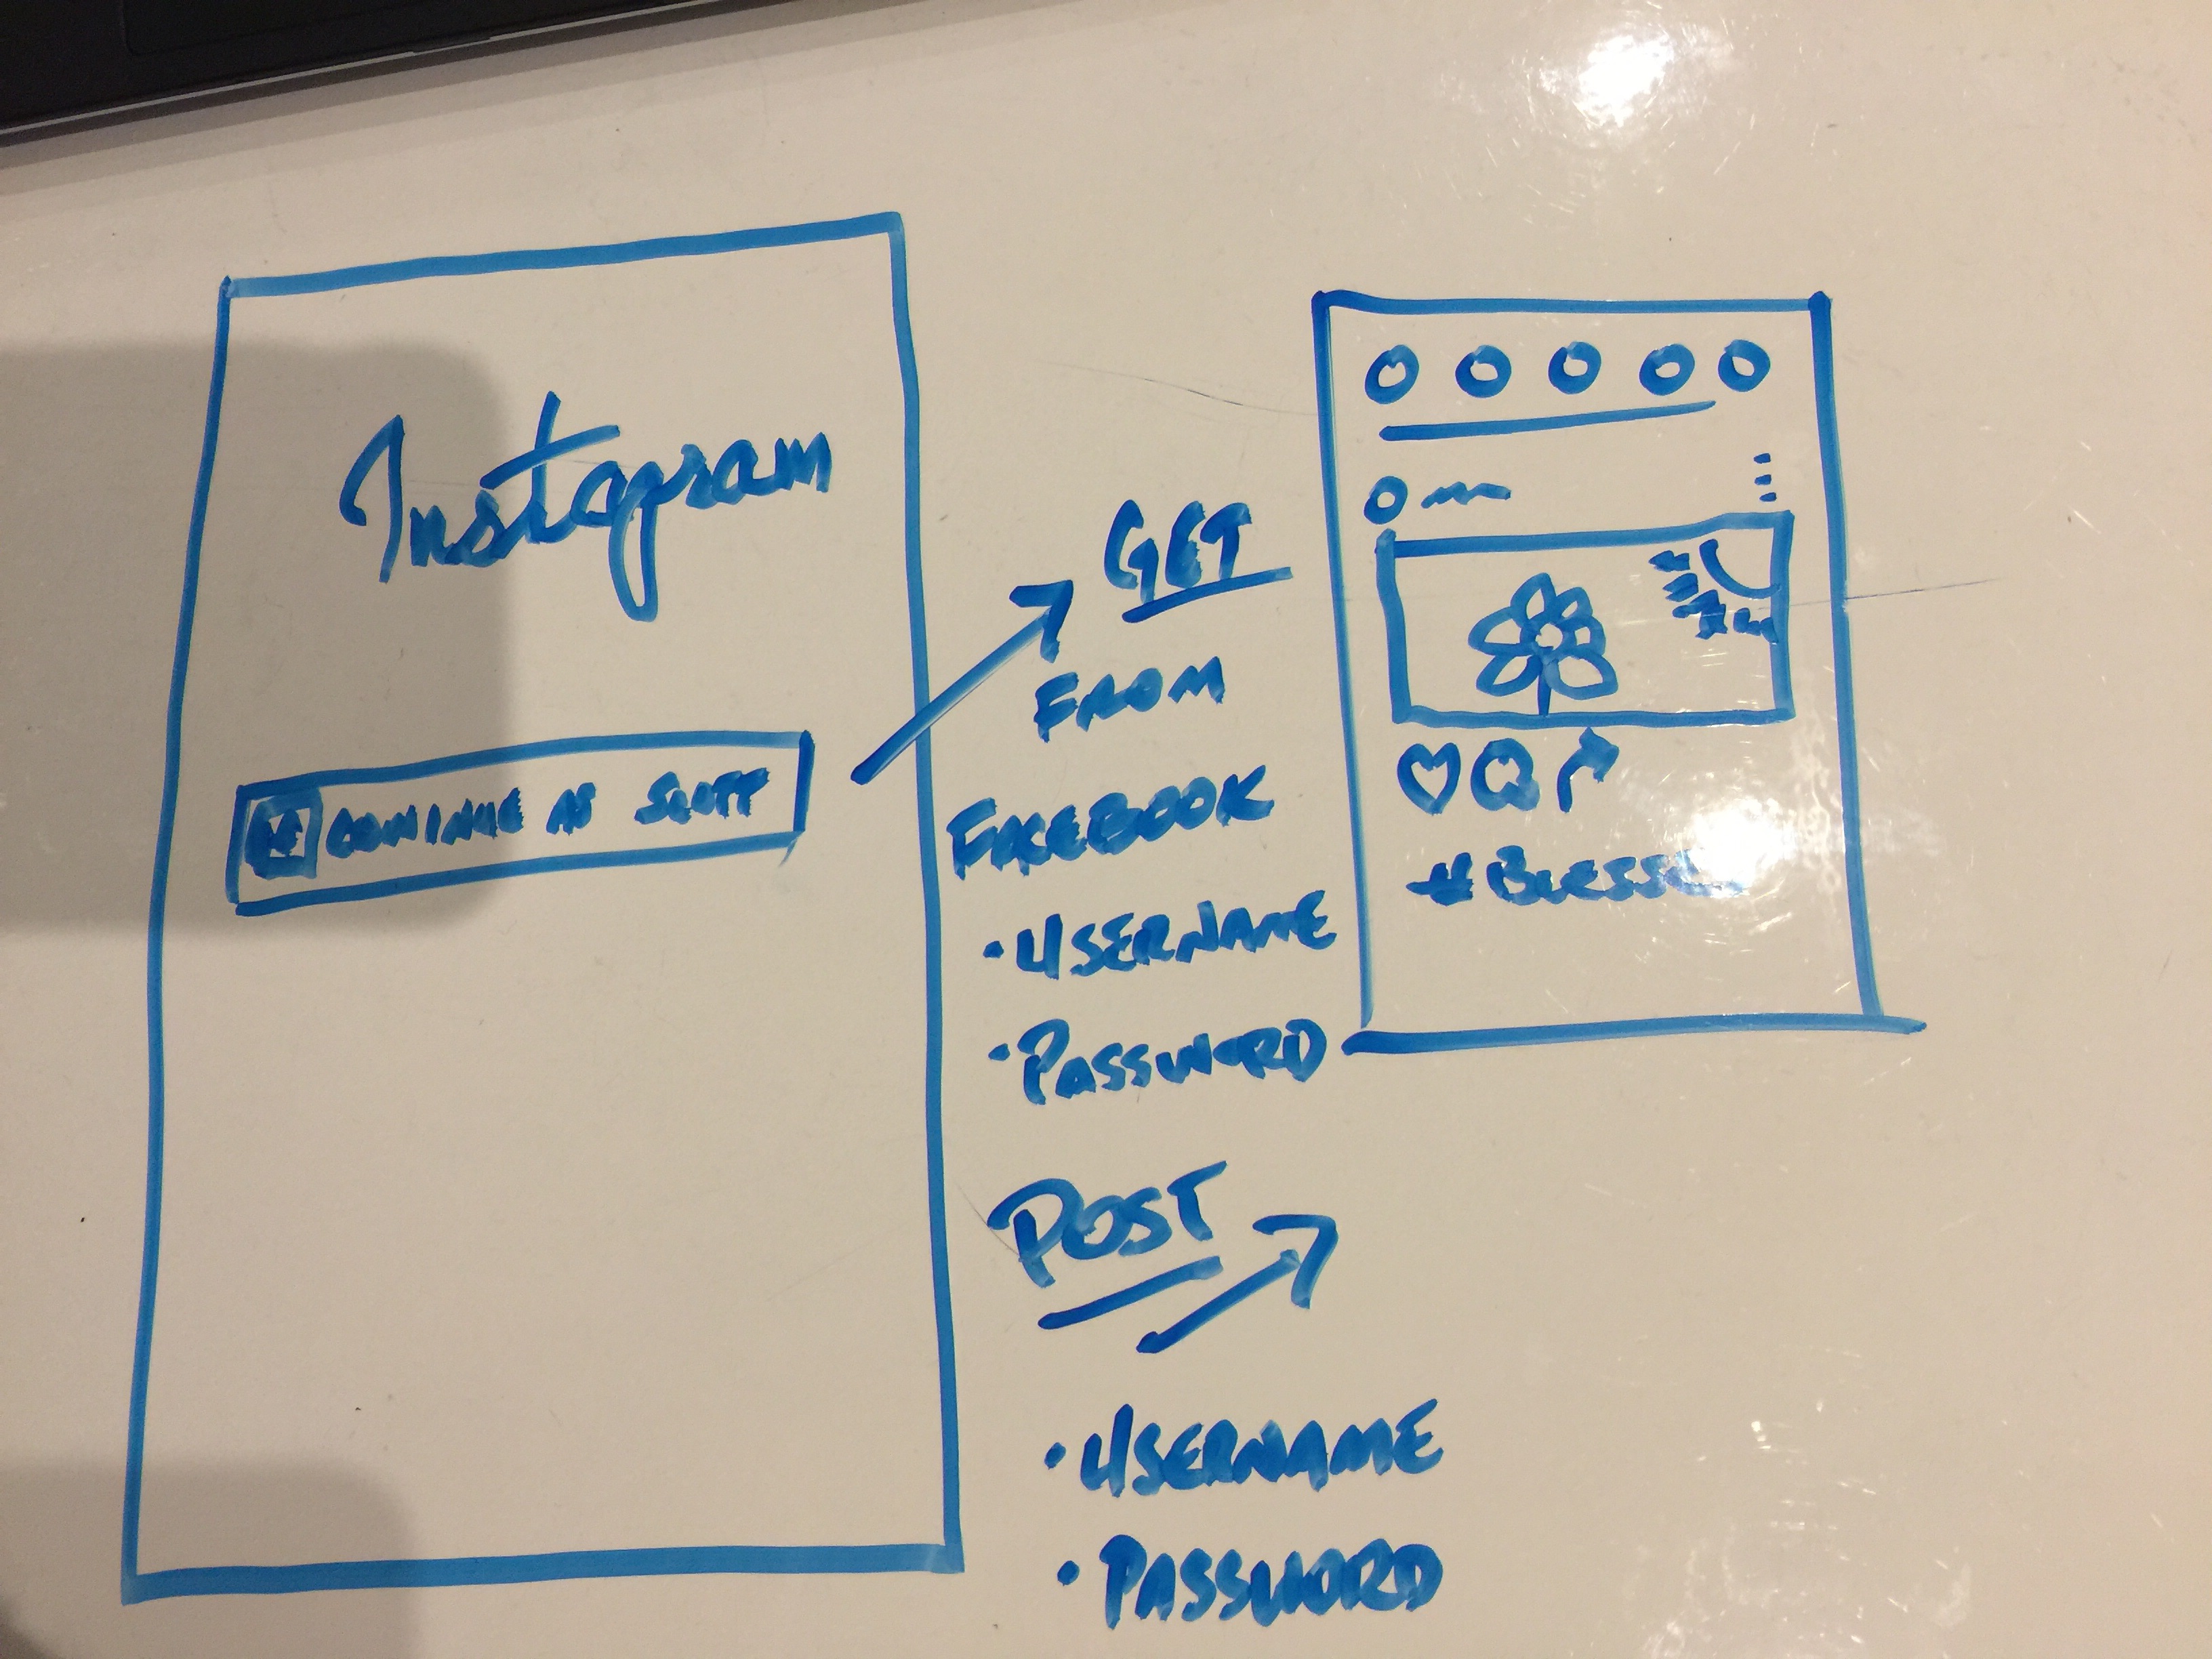 Instagram
CONTINUE AS SCOTT
GET
FROM
FACEBOOK
• USERNAME
• PASSWORD
POST
• USERNAME
• PASSWORD